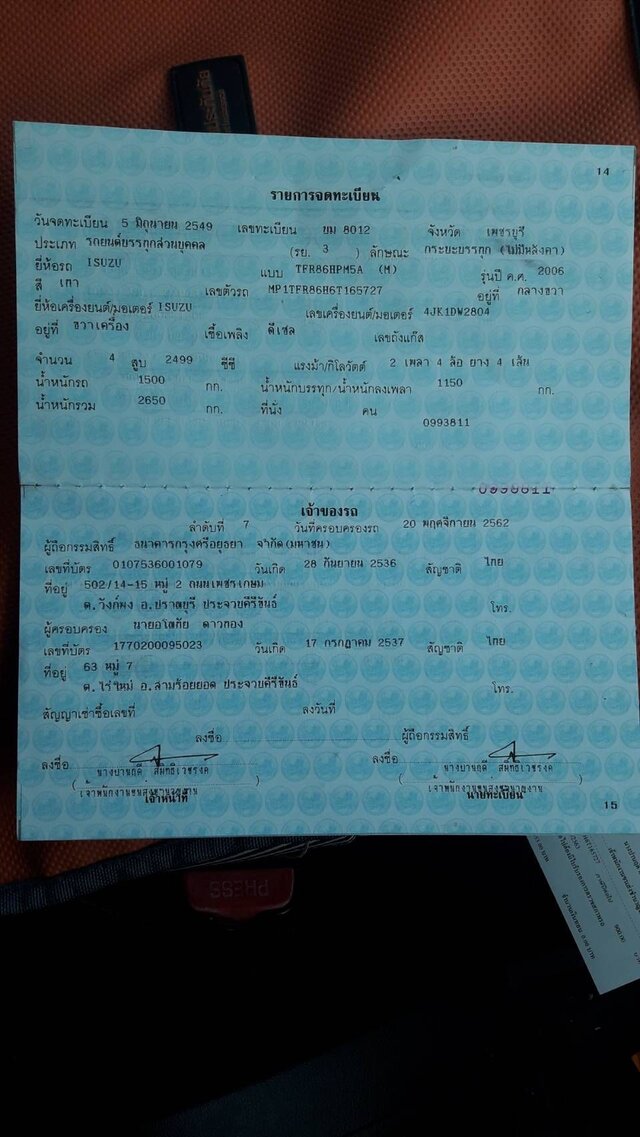 14
รายการจดทะเบียน
วันจดทะเบียน 5 มิถุนายน 2549 เลขทะเบียน บม 8012 จังหวัด เพชรบุรี
ประเภท รถยนต์บรรทุกส่วนบุคคล (รย. 3 ) ลักษณะ กระบะบรรทุก (ไม่มีหลังคา)
ยี่ห้อรถ ISUZU แบบ TFR86HPM5A (M) รุ่นปี ค.ศ. 2006
สี เทา เลขตัวรถ MP1TFR86H6T165727 อยู่ที่ กลางขวา
ยี่ห้อเครื่องยนต์/มอเตอร์ ISUZU เลขเครื่องยนต์/มอเตอร์ 4JK1DW2804
อยู่ที่ ขวาเครื่อง เชื้อเพลิง ดีเซล เลขถังแก๊ส
จำนวน 4 สูบ 2499 ซีซี แรงม้า/กิโลวัตต์ 2 เพลา 4 ล้อ ยาง 4 เส้น
น้ำหนักรถ 1500 กก. น้ำหนักบรรทุก/น้ำหนักลงเพลา 1150 กก.
น้ำหนักรวม 2650 กก. ที่นั่ง คน
0993811
0993811
เจ้าของรถ
ลำดับที่ 7 วันที่ครอบครองรถ 20 พฤศจิกายน 2562
ผู้ถือกรรมสิทธิ์ ธนาคารกรุงศรีอยุธยา จำกัด(มหาชน)
เลขที่บัตร 0107536001079 วันเกิด 28 กันยายน 2536 สัญชาติ ไทย
ที่อยู่ 502/14-15 หมู่ 2 ถนนเพชรเกษม
ต.วังก์พง อ.ปราณบุรี ประจวบคีรีขันธ์ โทร.
ผู้ครอบครอง นายอโณทัย ดาวทอง
เลขที่บัตร 1770200095023 วันเกิด 17 กรกฎาคม 2537 สัญชาติ ไทย
ที่อยู่ 63 หมู่ 7
ต.ไร่ใหม่ อ.สามร้อยยอด ประจวบคีรีขันธ์ โทร.
สัญญาเช่าซื้อเลขที่ ลงวันที่
ลงชื่อ ผู้ถือกรรมสิทธิ์
ลงชื่อ ลงชื่อ
เจ้าหน้าที่ นายทะเบียน
15
PRESS